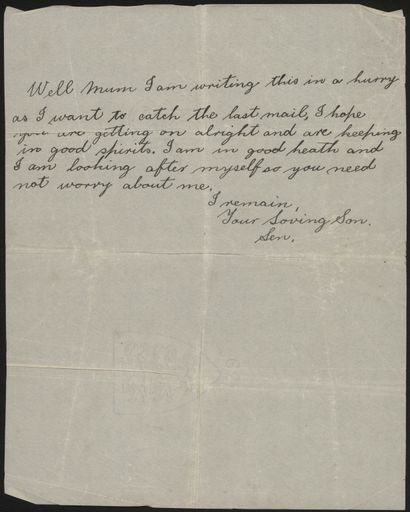 Well Mum I am writing this in a hurry
as I want to catch the last mail, I hope
you are getting on alright and are keeping
in good spirits. I am in good heath and
I am looking after myself so you need
not worry about me.
I remain,
Your Loving Son.
Len.